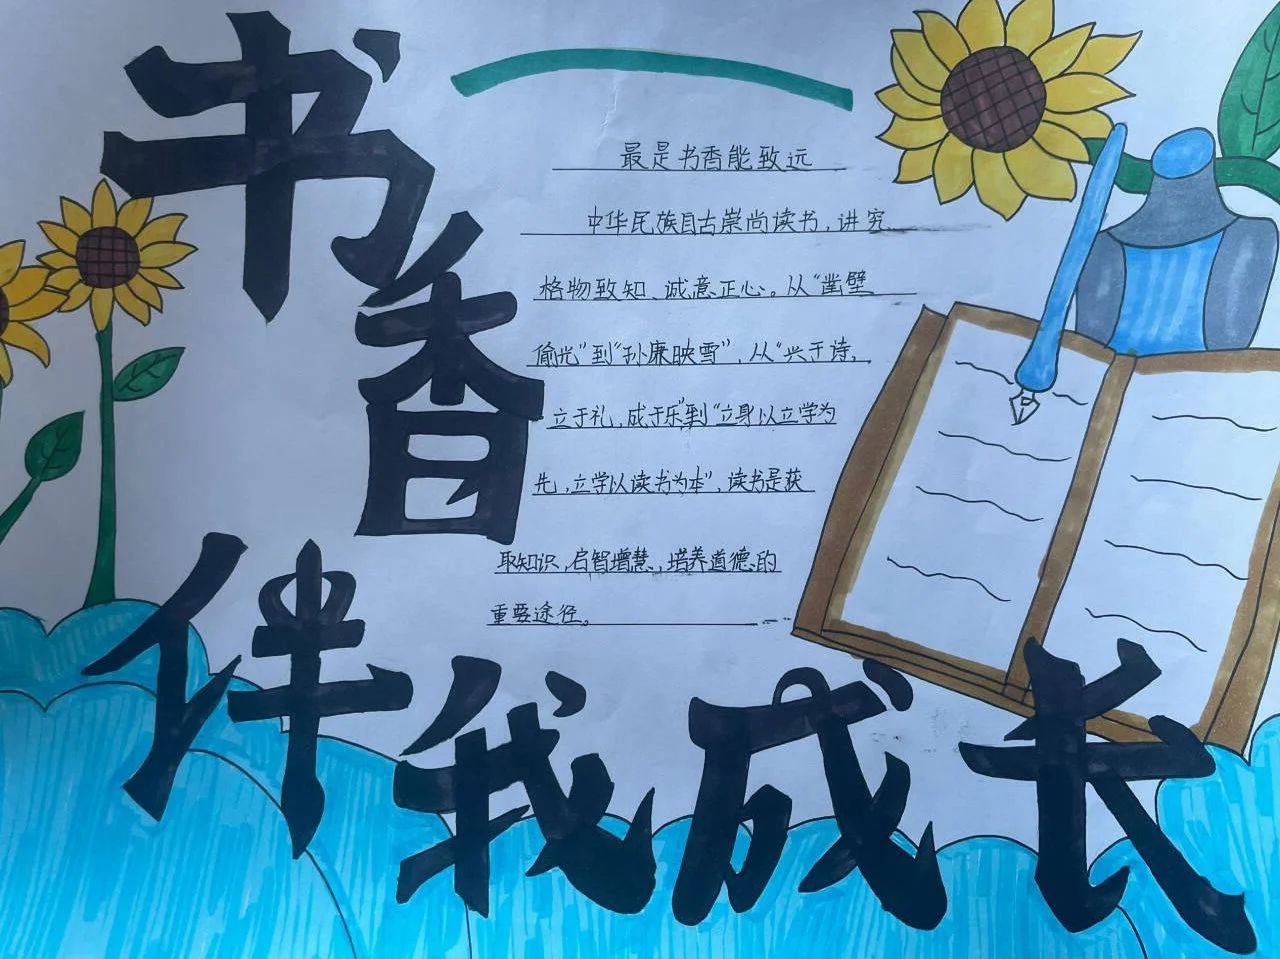 书香
伴我成长
最是书香能致远
中华民族自古崇尚读书,讲究
格物致知、诚意正心。从“凿壁
偷光”到“孙康映雪”,从“兴于诗,
立于礼,成于乐”到“立身以立学为
先,立学以读书为本”,读书是获
取知识,启智增慧,培养道德的
重要途径。